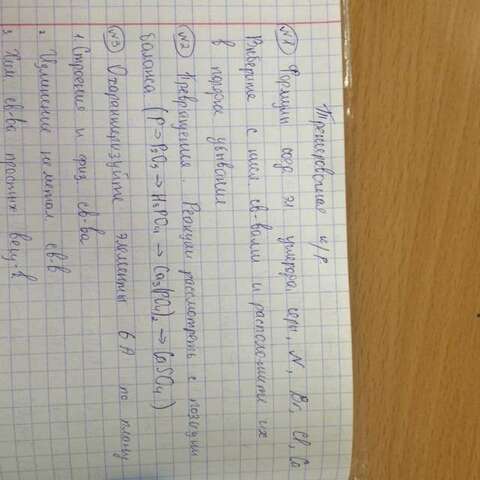 Тренировочная к/р
№1 Формулы соед эл углерода, серы, N, Br, Cl, Ca
Выберите с кисл. св-вами и расположите их
в порядке убывания
№2 Превращения. Реакции рассмотреть с позиции
баланса (P → P₂O₅ → H₃PO₄ → Ca₃(PO₄)₂ → CaSO₄)
№3 Охарактеризуйте элементы 6A по плану
1. Строение и физ св-ва
2 Изменение неметал св-в
3 Хим св-ва простых вещ-в